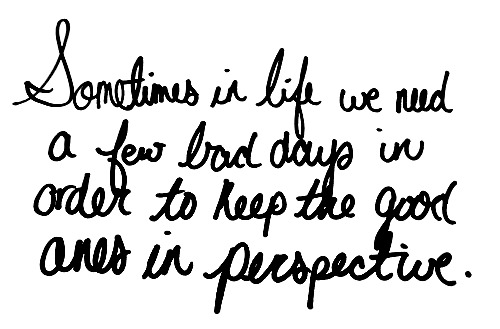 Sometimes in life we need
a few bad days in
order to keep the good
ones in perspective.